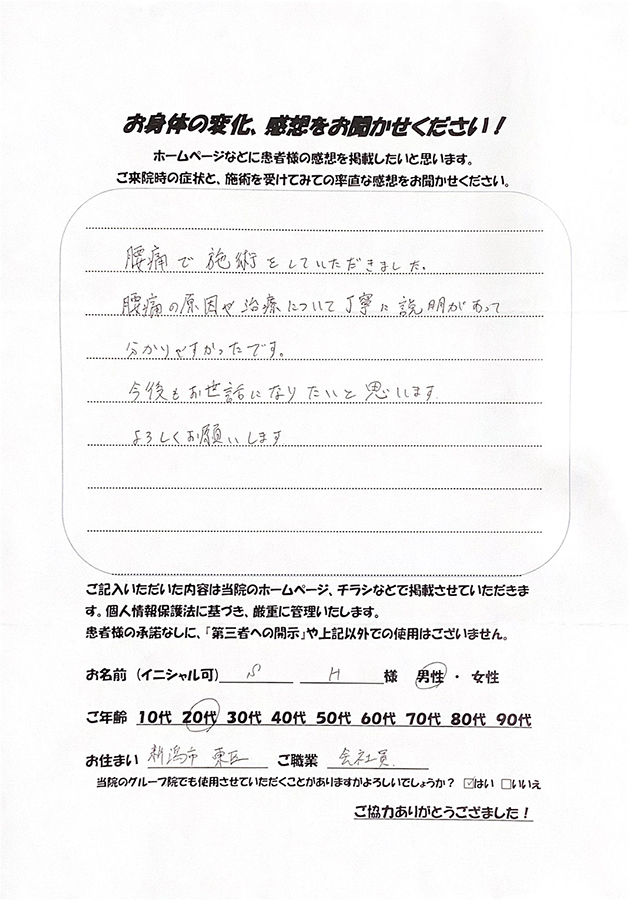 お身体の変化、感想をお聞かせください！
ホームページなどに患者様の感想を掲載したいと思います。
ご来院時の症状と、施術を受けてみての率直な感想をお聞かせください。
腰痛で施術をしていただきました。
腰痛の原因や治療について丁寧に説明があって
分かりやすかったです。
今後もお世話になりたいと思います.
よろしくお願いします
ご記入いただいた内容は当院のホームページ、チラシなどで掲載させていただきま
す。個人情報保護法に基づき、厳重に管理いたします。
患者様の承諾なしに、「第三者への開示」や上記以外での使用はございません。
お名前（イニシャル可） S H 様 男性 ・ 女性
ご年齢 10代 20代 30代 40代 50代 60代 70代 80代 90代
お住まい 新潟市 東区 ご職業 会社員.
当院のグループ院でも使用させていただくことがありますがよろしいでしょうか？ ☑はい □いいえ
ご協力ありがとうござまました！